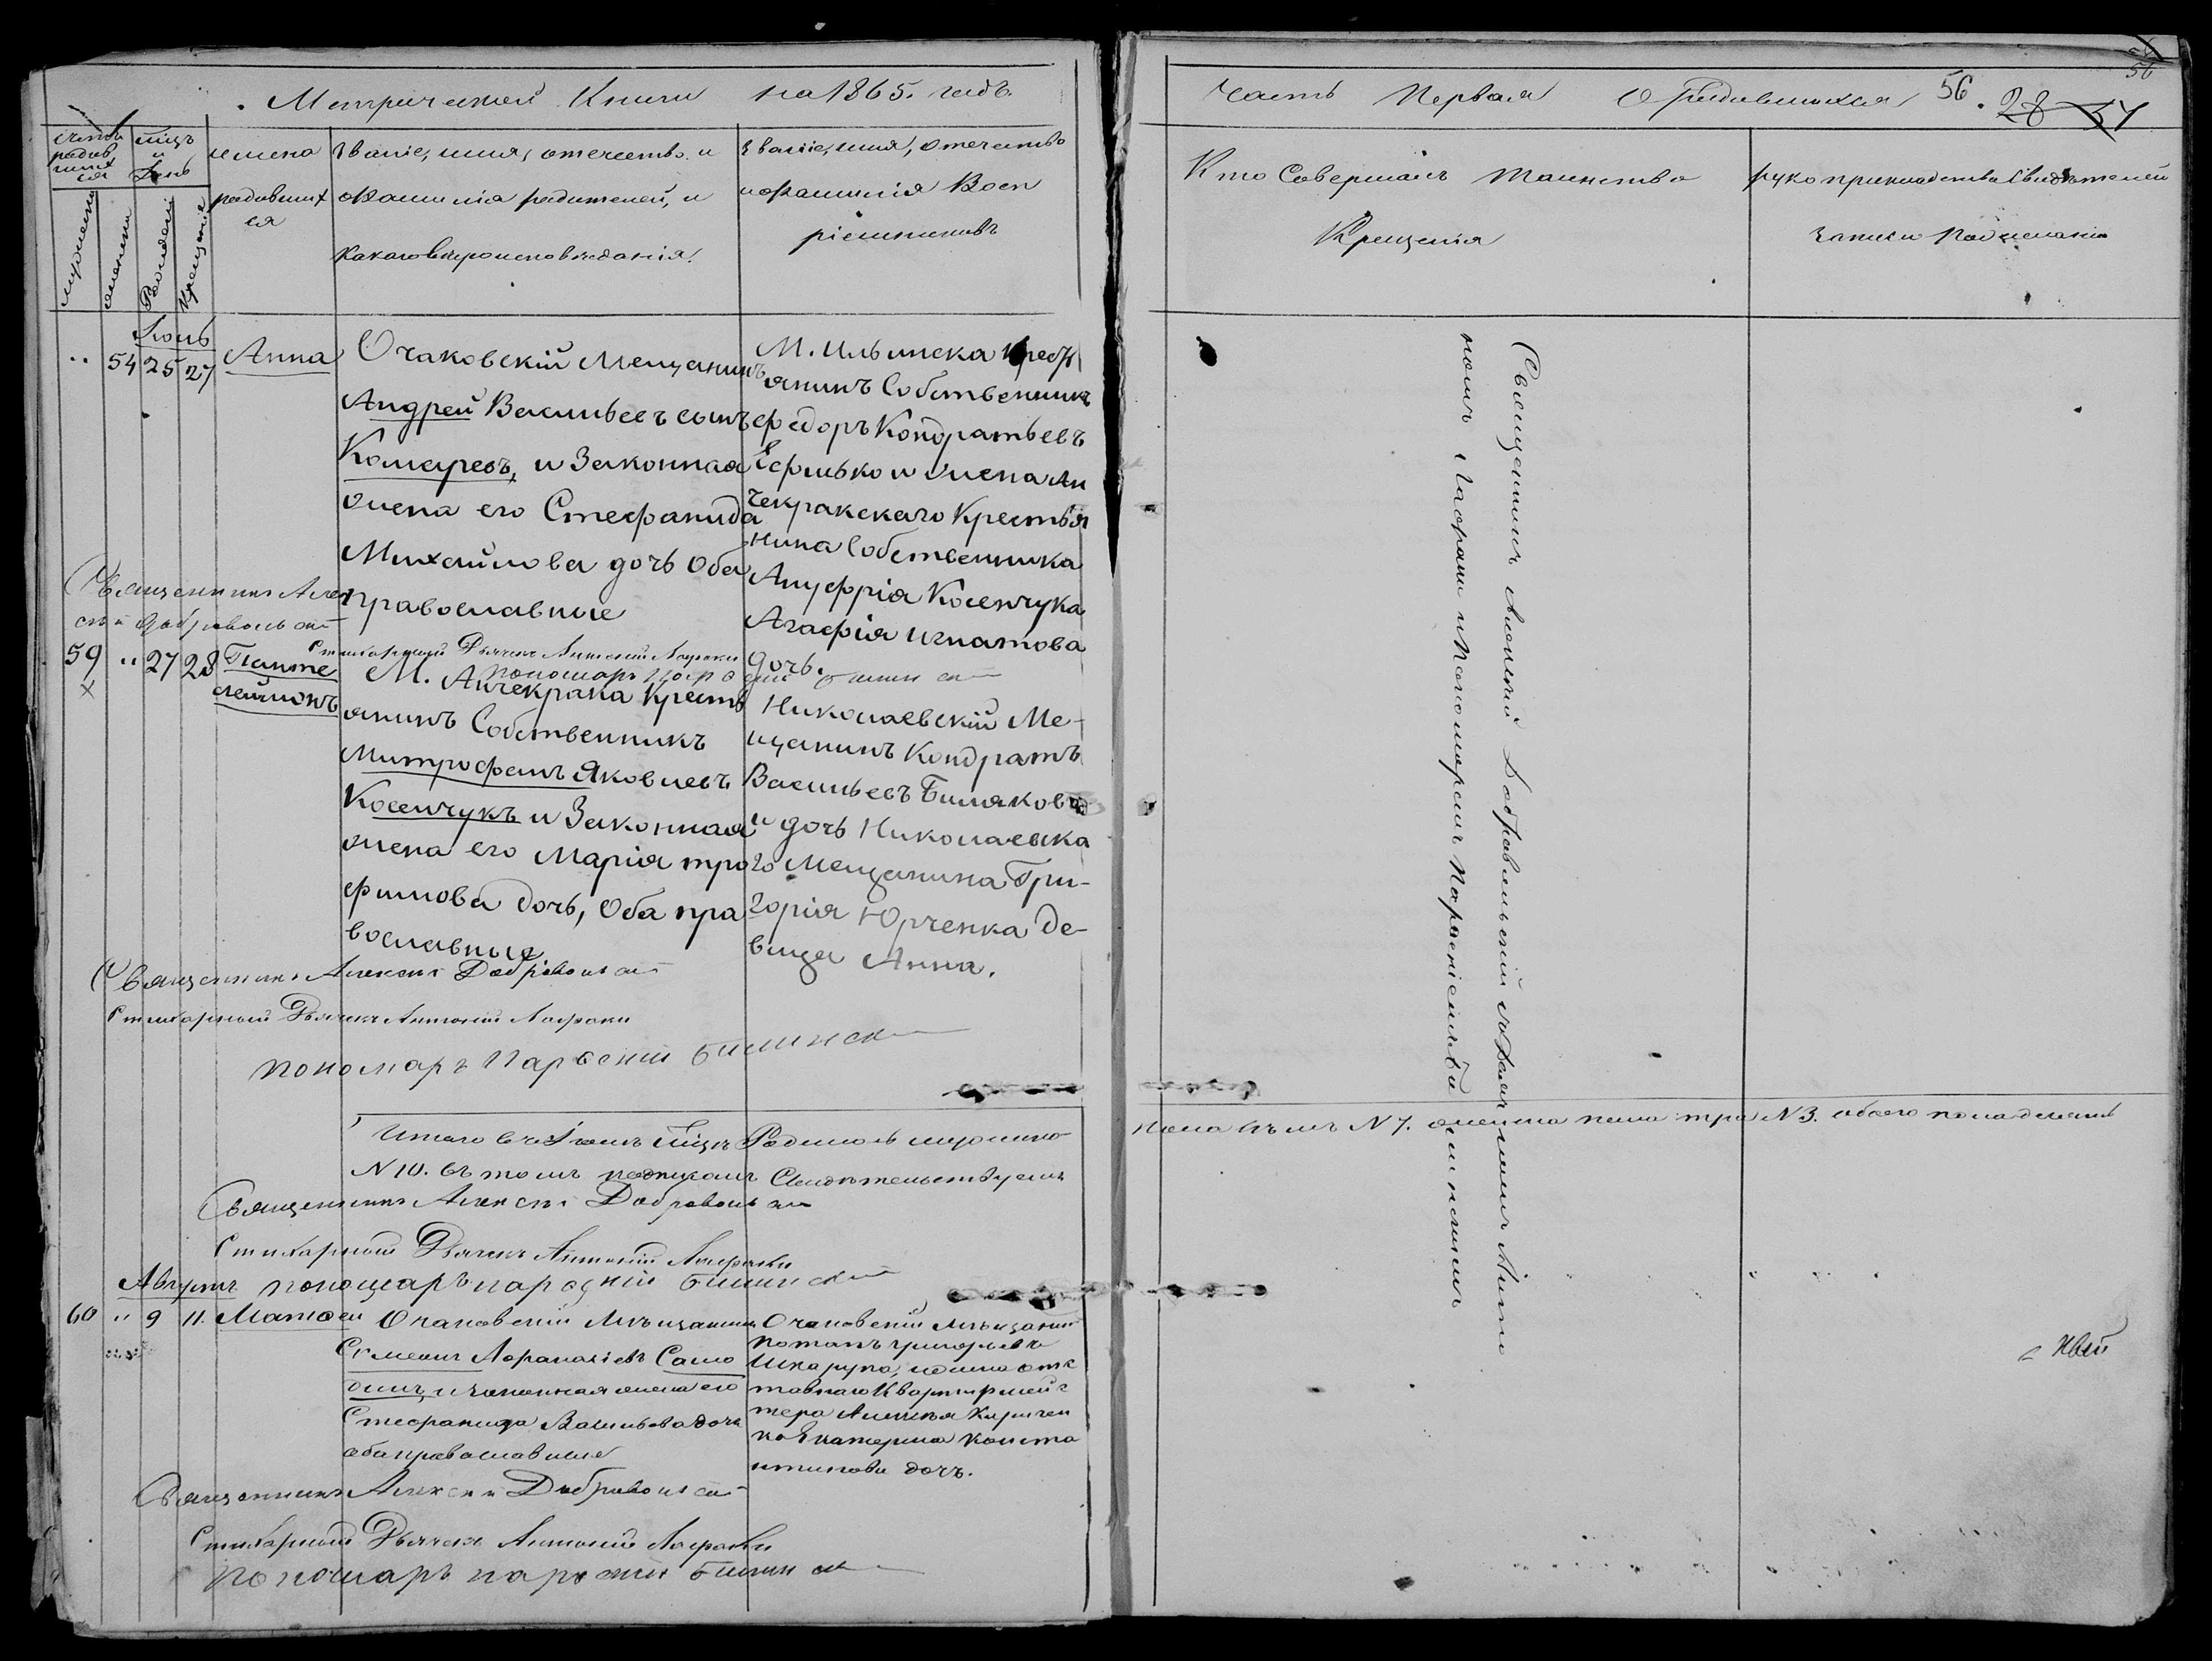 Метрической Книги на 1865. годъ.
Часть Первая О Родившихся 56. 28 57
56
счетъ родив шихся
мцъ и день
имена родившихся
мужеска
женска
Рожденія
Крещенія
званіе, имя, отечество и
фамилія родителей, и
какого вѣроисповѣданія.
званіе, имя, отечество
и фамилія Восп
ріемниковъ
Кто Совершалъ таинство
Крещенія
рукоприкладство Свидѣтелей
записи по желанію
Іюль
" 54 25 27 Анна
Очаковскій Мещанинъ
Андрей Васильевъ сынъ
Комаревъ, и Законная
жена его Стефанида
Михайлова дочь Оба
православные
М. Ильинска крестъ
янинъ Собственникъ
Федоръ Кондратьевъ
и жена Ан
чекракскаго Крестья
нина Собственника
Ануфрія Косенчука
Агафія Игнатова
дочь.
Священникъ Алек
сѣй Добровольскій
Стихарный Дьячекъ Антоній Лафаки
пономарь Парфеній Билинскій
59 " 27 28 Панте
леймонъ
М. Анчекрака Кресть
янинъ Собственникъ
Митрофанъ Яковлевъ
Косенчукъ и Законная
жена его Марія тро
фимова дочь, Оба пра
вославные
Николаевскій Ме-
щанинъ Кондратъ
Васильевъ Биляковъ
и дочь Николаевска
го Мещанина Гри-
горія Юрченка де-
вица Анна.
Священникъ Алексѣй Добровольскій
Стихарный Дьячекъ Антоній Лафаки
пономарь Парфеній Билинскій
Священникъ Алексѣй Добровольскій
номъ Лафаки и Пономаремъ Парфеніемъ Билинскимъ
Итого въ Іюлѣ мцѣ Родилось мужеска
пола семь N 7. женска пола три N 3. обоего пола десять
N 10. въ томъ подписомъ Свидѣтельствуемъ
Священникъ Алексѣй Добровольскій
Стихарный Дьячекъ Антоній Лафаки
пономарь парфеній Билинскій
Августъ
60 " 9 11. Матѳей
Очаковскій Мѣщанинъ
Семенъ Афанасіевъ Само
динъ и законная жена его
Стефанида Васильева дочь
оба православные
Очаковскій Мѣщанинъ
Потапъ Григорьевъ
Шкарупа, и жена отс
тавнаго Квартирмейс
тера Алексѣя Киричен
ко Екатерина Конста
нтинова дочь.
Священникъ Алексѣй Добровольскій
Стихарный Дьячекъ Антоній Лафаки
пономарь парфеній Билинскій